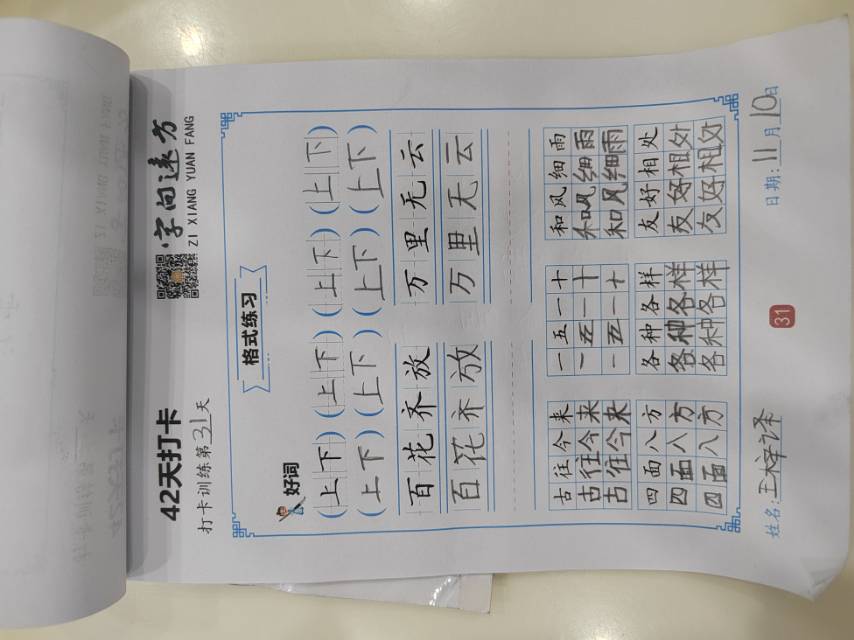 42天打卡
字向速方
ZI XIANG YUAN FANG
打卡训练第31天
格式练习
好词
(上下)(上下)(上下)(上下)
(上下)(上下)(上下)(上下)
百花齐放 万里无云
百花齐放 万里无云
古往今来 一五一十 和风细雨
古往今来 一五一十 和风细雨
古往今来 一五一十 和风细雨
四面八方 各种各样 友好相处
四面八方 各种各样 友好相处
四面八方 各种各样 友好相处
姓名:王梓译 31 日期:11月10日